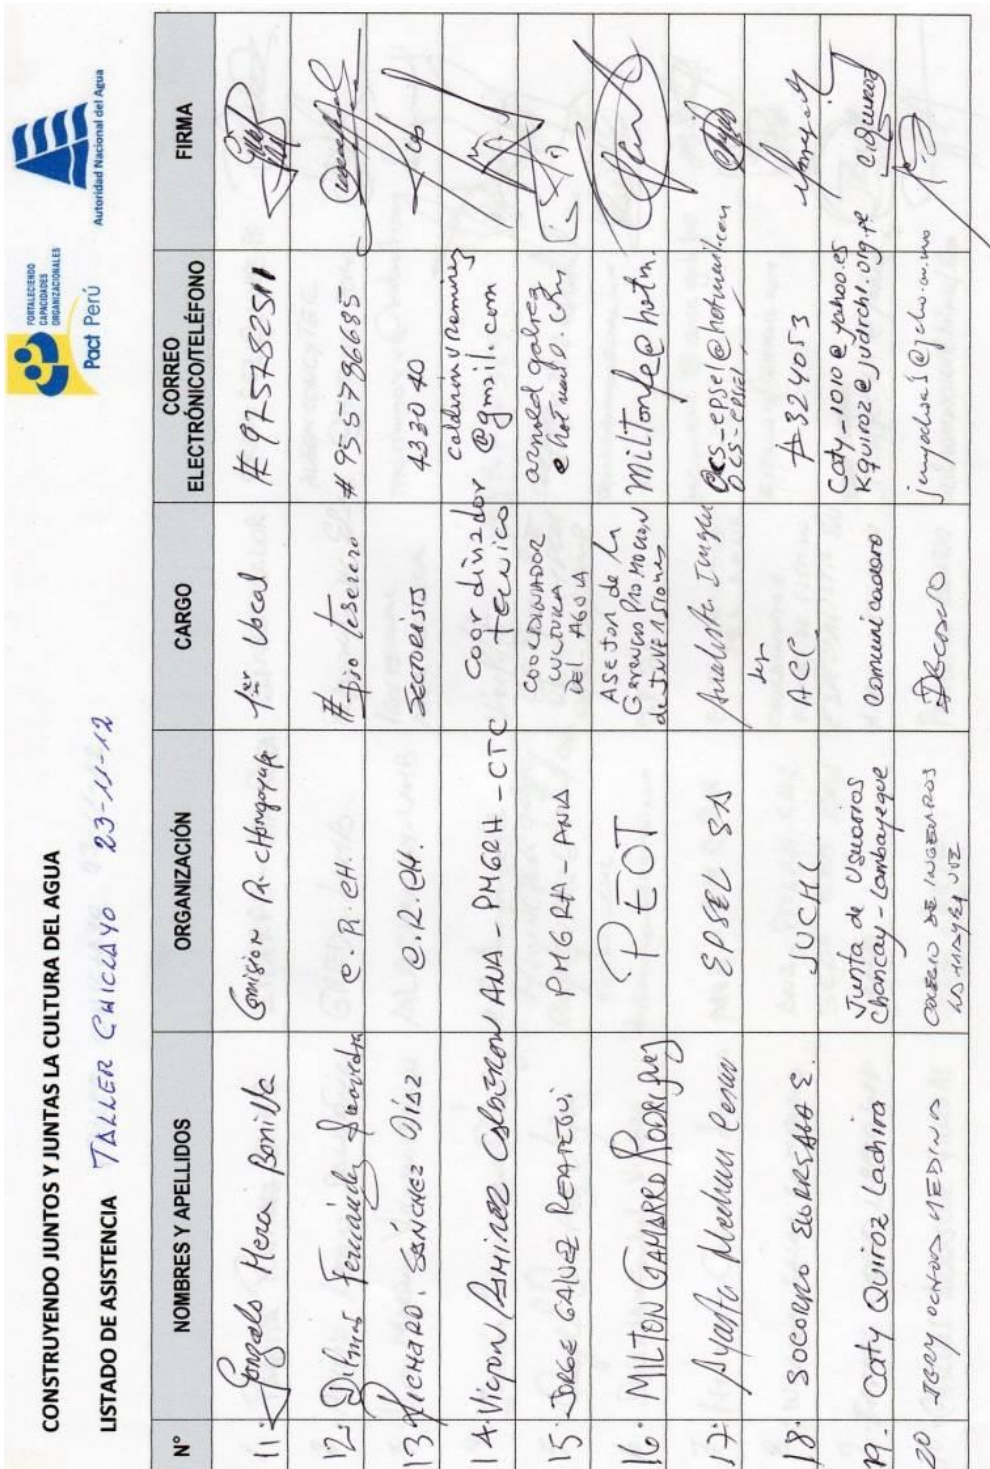 CONSTRUYENDO JUNTOS Y JUNTAS LA CULTURA DEL AGUA
FORTALECIENDO
CAPACIDADES
ORGANIZACIONALES
Pact Perú
Autoridad Nacional del Agua
LISTADO DE ASISTENCIA TALLER CHICLAYO 23-11-12
N° NOMBRES Y APELLIDOS ORGANIZACIÓN CARGO CORREO ELECTRÓNICO/TELÉFONO FIRMA
11. Gonzalo Mera Bonilla Comisión R. Chongoyape 1er Vocal # 975782511
12. Fernández Saavedra C.R.CH. Tesorero # 955796685
13 RICHARD. SÁNCHEZ DÍAZ C.R.CH. SECTORISTA 433040
14. Victor RAMIREZ CALDERON ANA-PMGRH-CTC Coordinador Técnico calderinvramirez @gmail.com
15. JORGE GALVEZ REATEGUI PMGRH-ANA COORDINADOR CULTURA DEL AGUA arnold galvez @hotmail.com
16. MILTON GAMARRO RODRIGUEZ PEOT Asesor de la Gerencia Promocion de INVERSIONES miltonfe@hotm.
17. EPSEL SA Analista Imagen ocs-epsel@hotmail.com
18. SOCORRO JUCHL ACC #324053
19. Caty Quiroz Lachira Junta de Usuarios Chancay-Lambayeque Comunicadora Caty_1010@yahoo.es Kquiroz@judrchl.org.pe
20 OCHOA MEDINA COLEGIO DE INGENIEROS LAMBAYEQUE DECANO